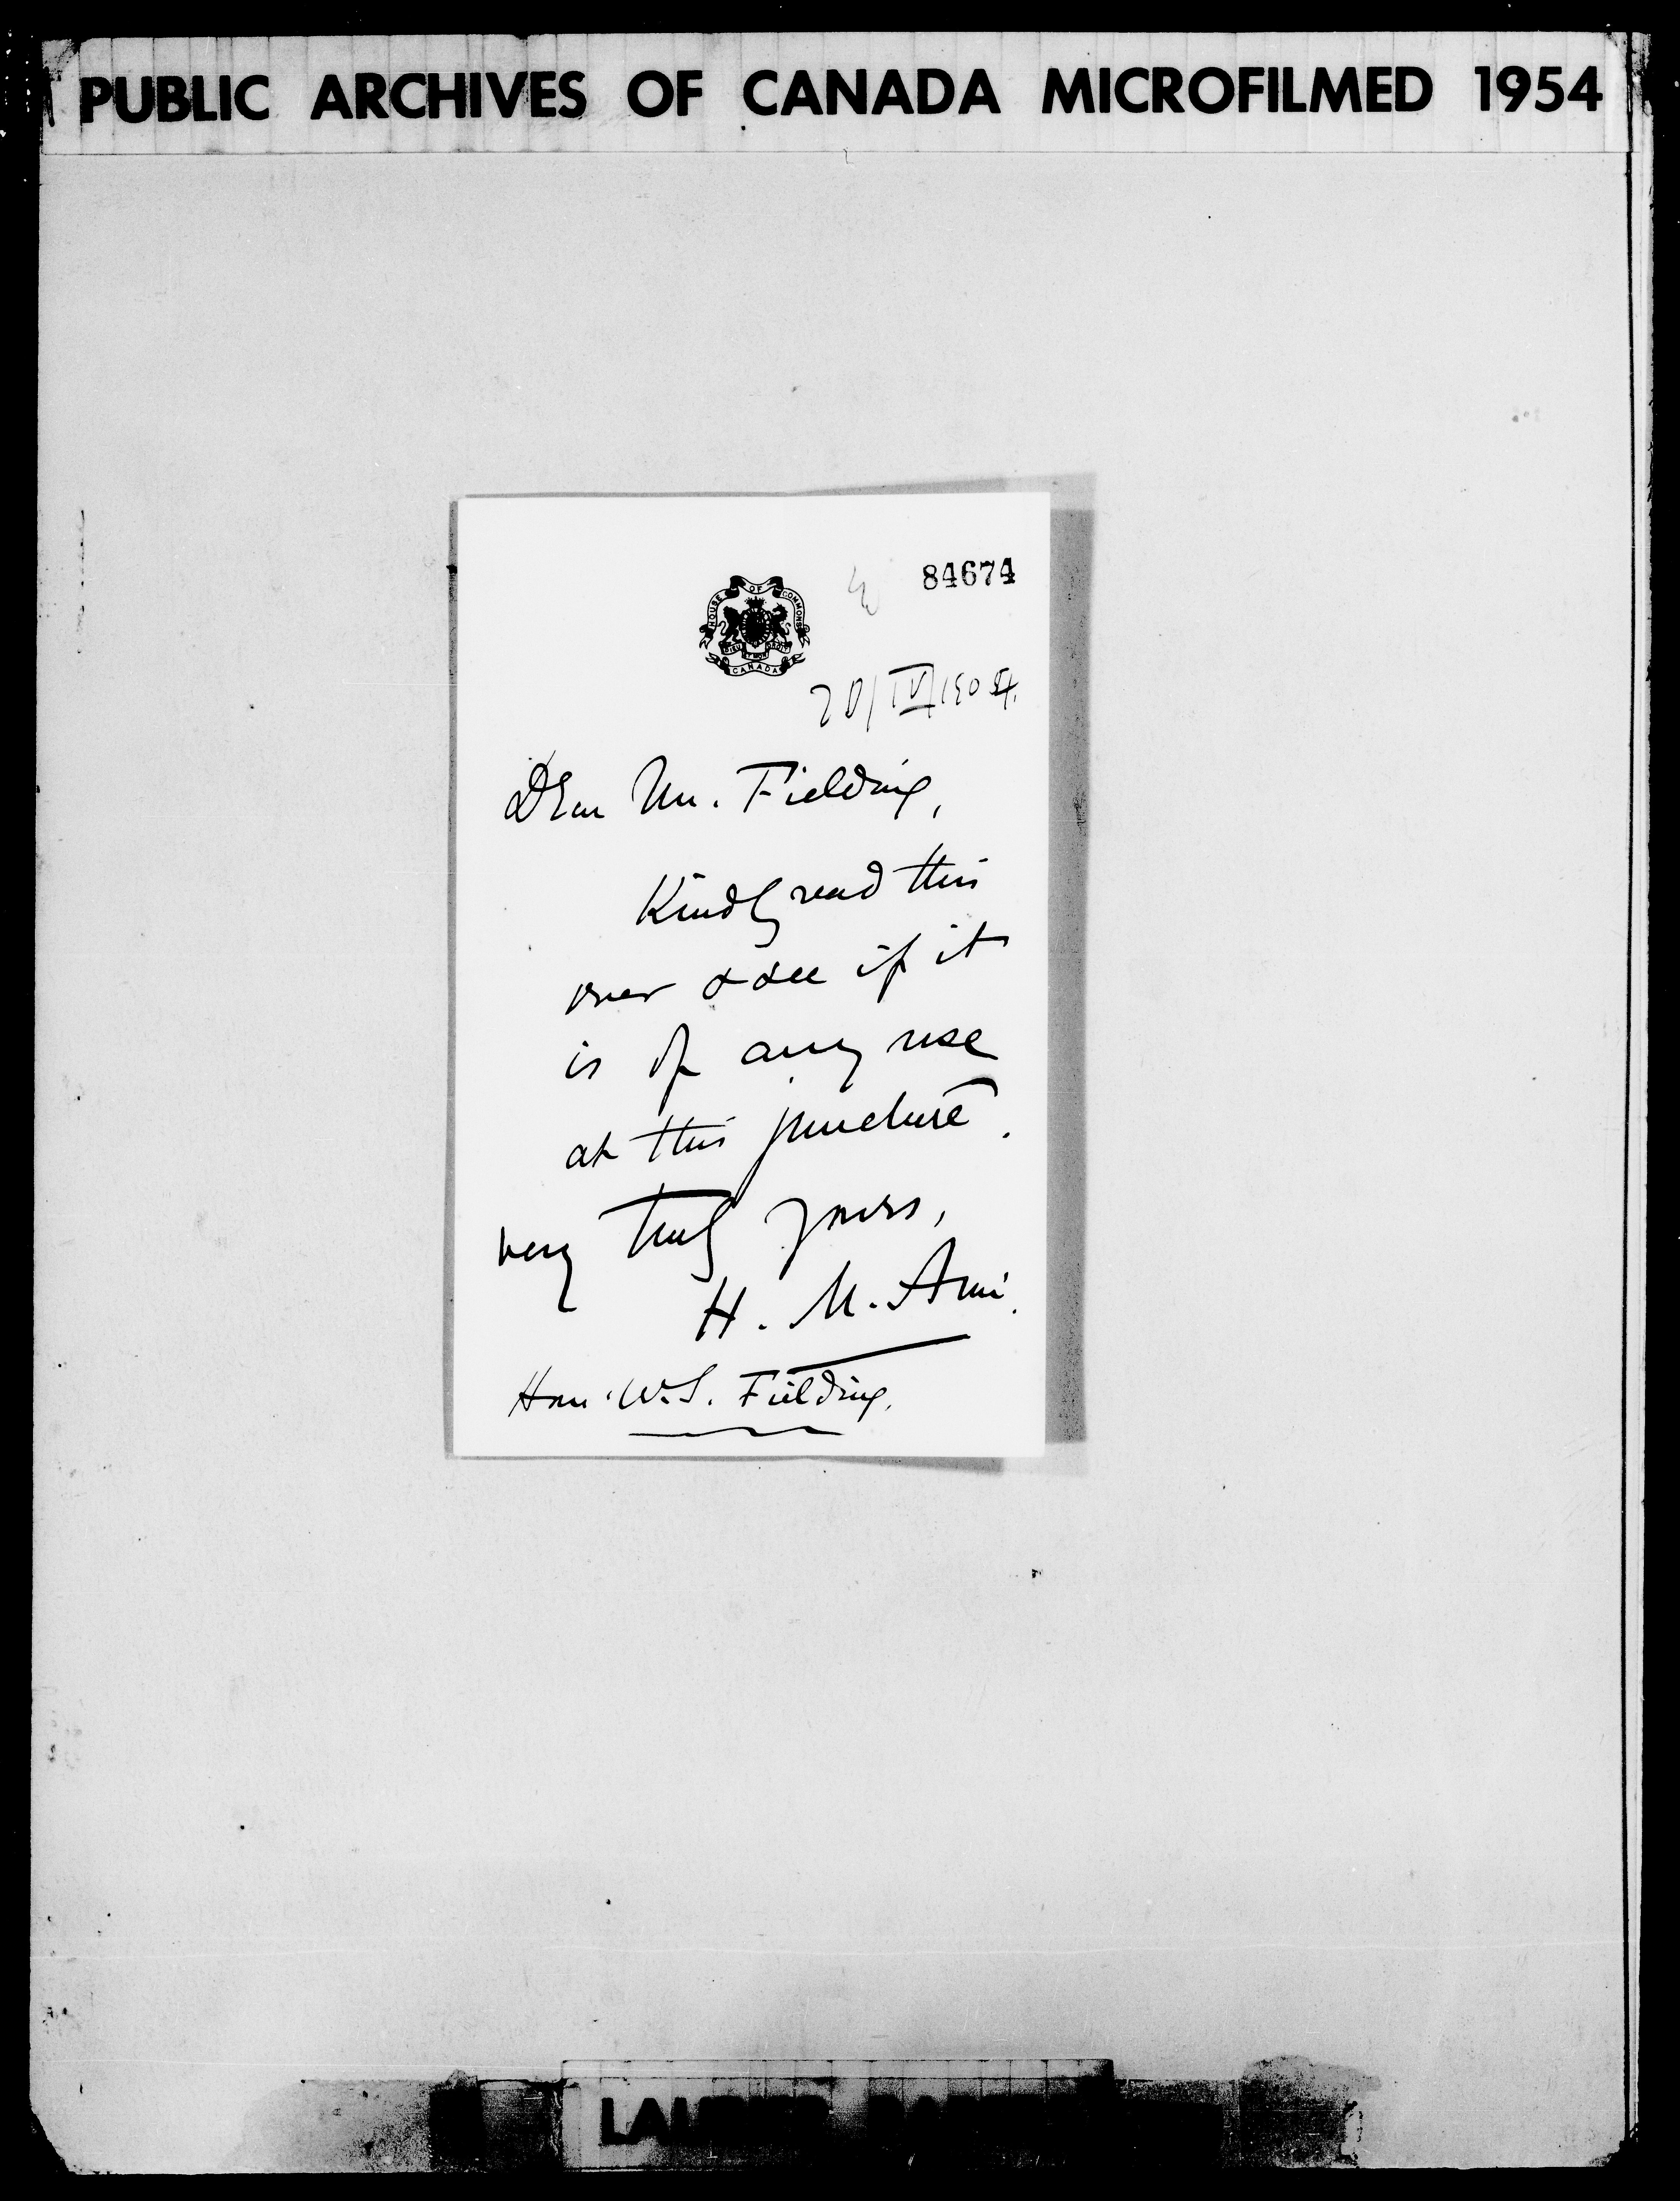 PUBLIC ARCHIVES OF CANADA MICROFILMED 1954
84674
HOUSE OF COMMONS
DIEU ET MON DROIT
CANADA
Dear Mr. Fielding,
Kindly read this
over & see if it
is of any use
at this juncture.
very truly yours,
H. M. Ami.
Hon. W.S. Fielding.